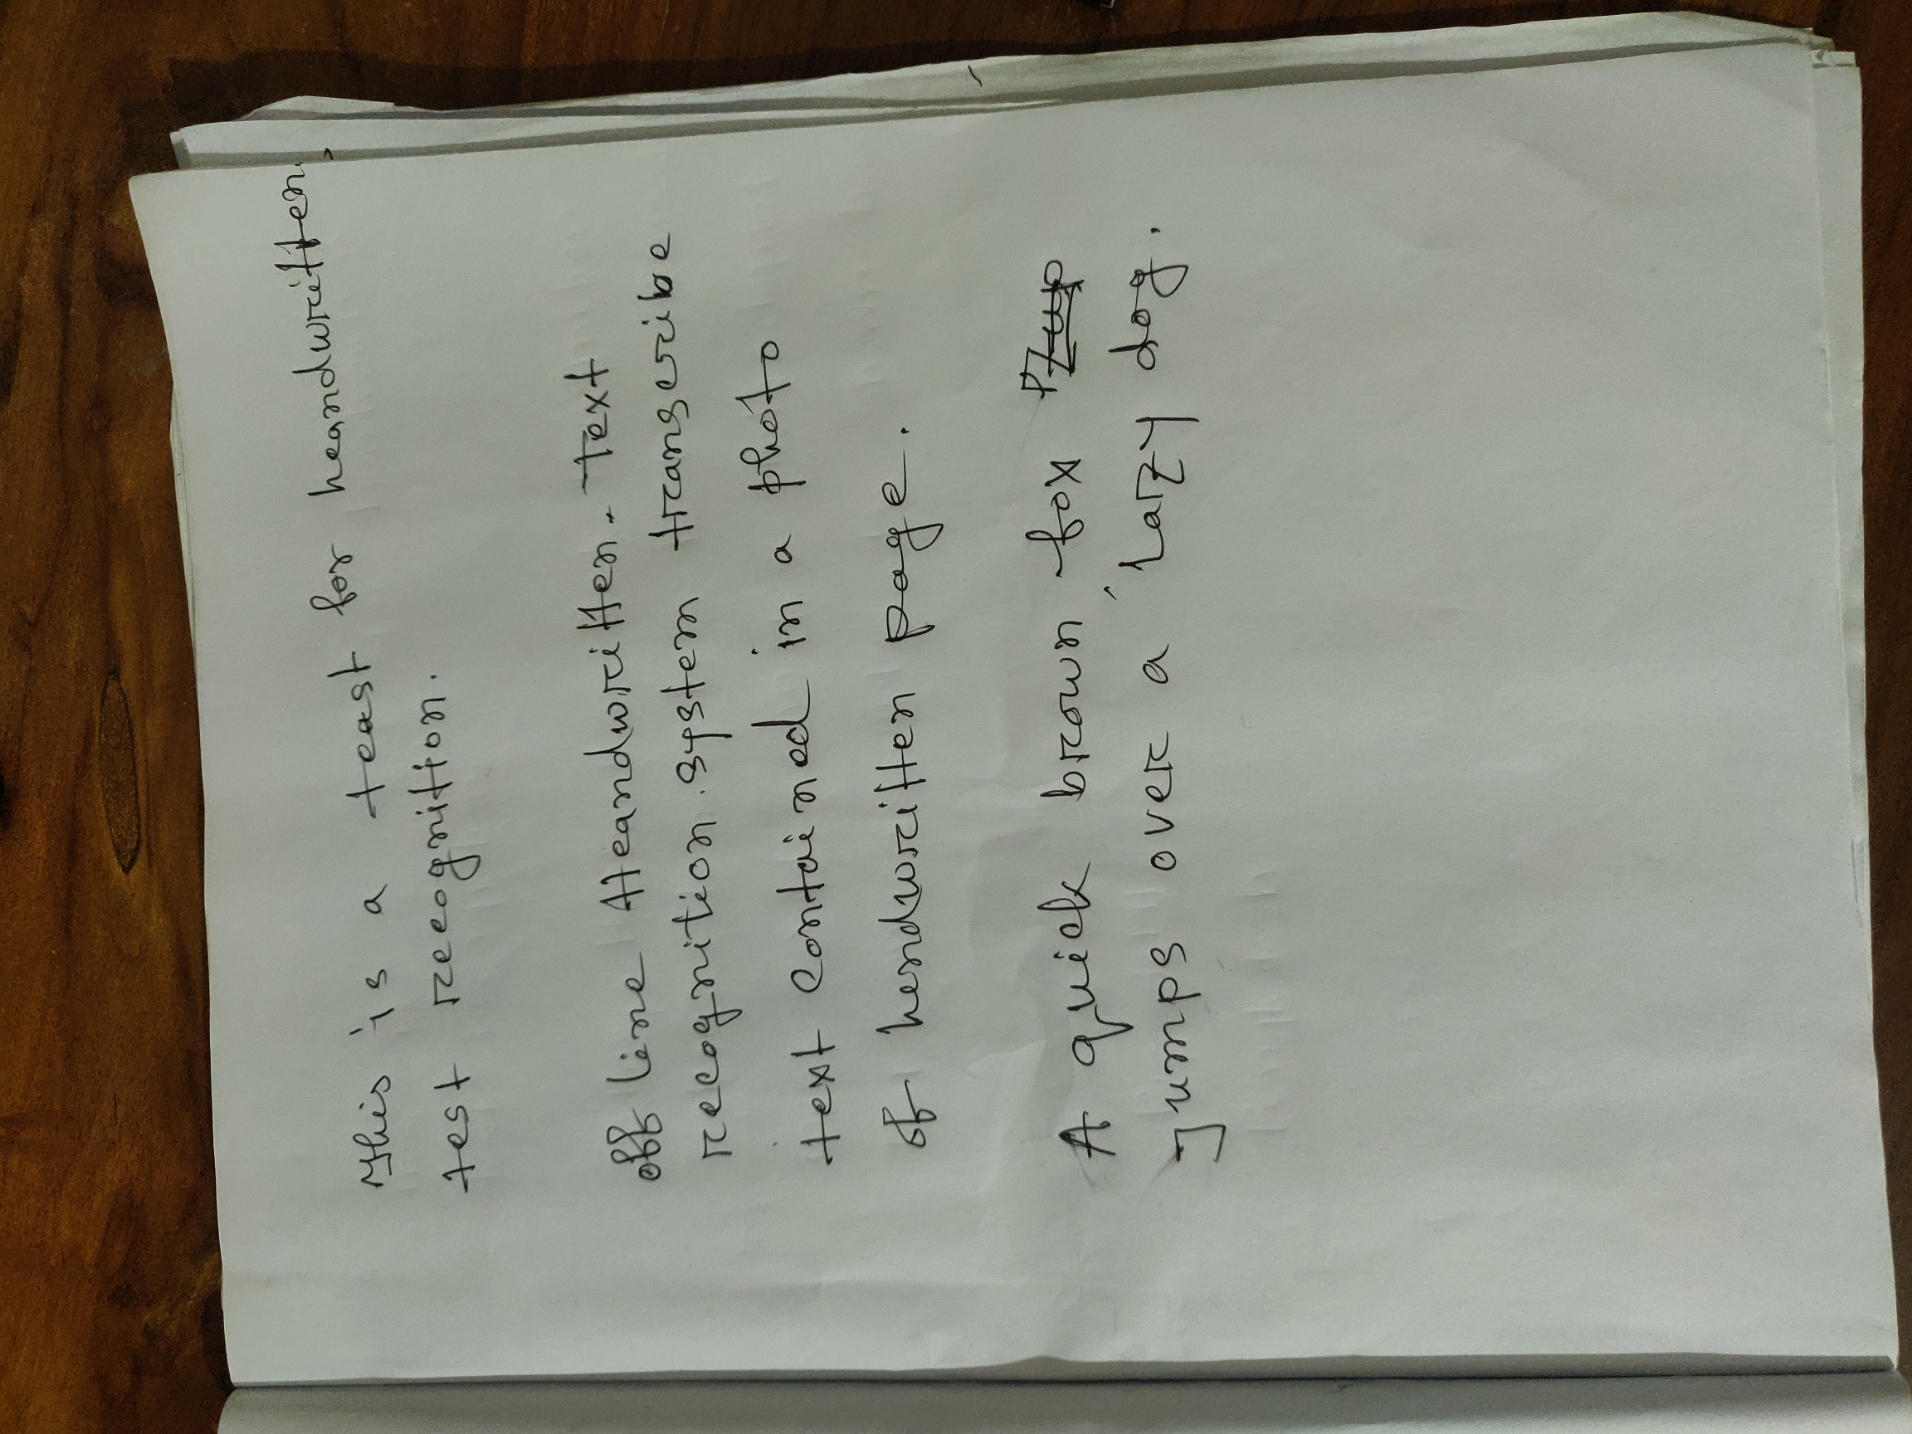 This is a teast for heandwritten
test recognition.
off line Heandwritten Text
recognition system transcribe
text contained in a photo
of hendwritten page.
A quick brown fox
jumps over a lazy dog.